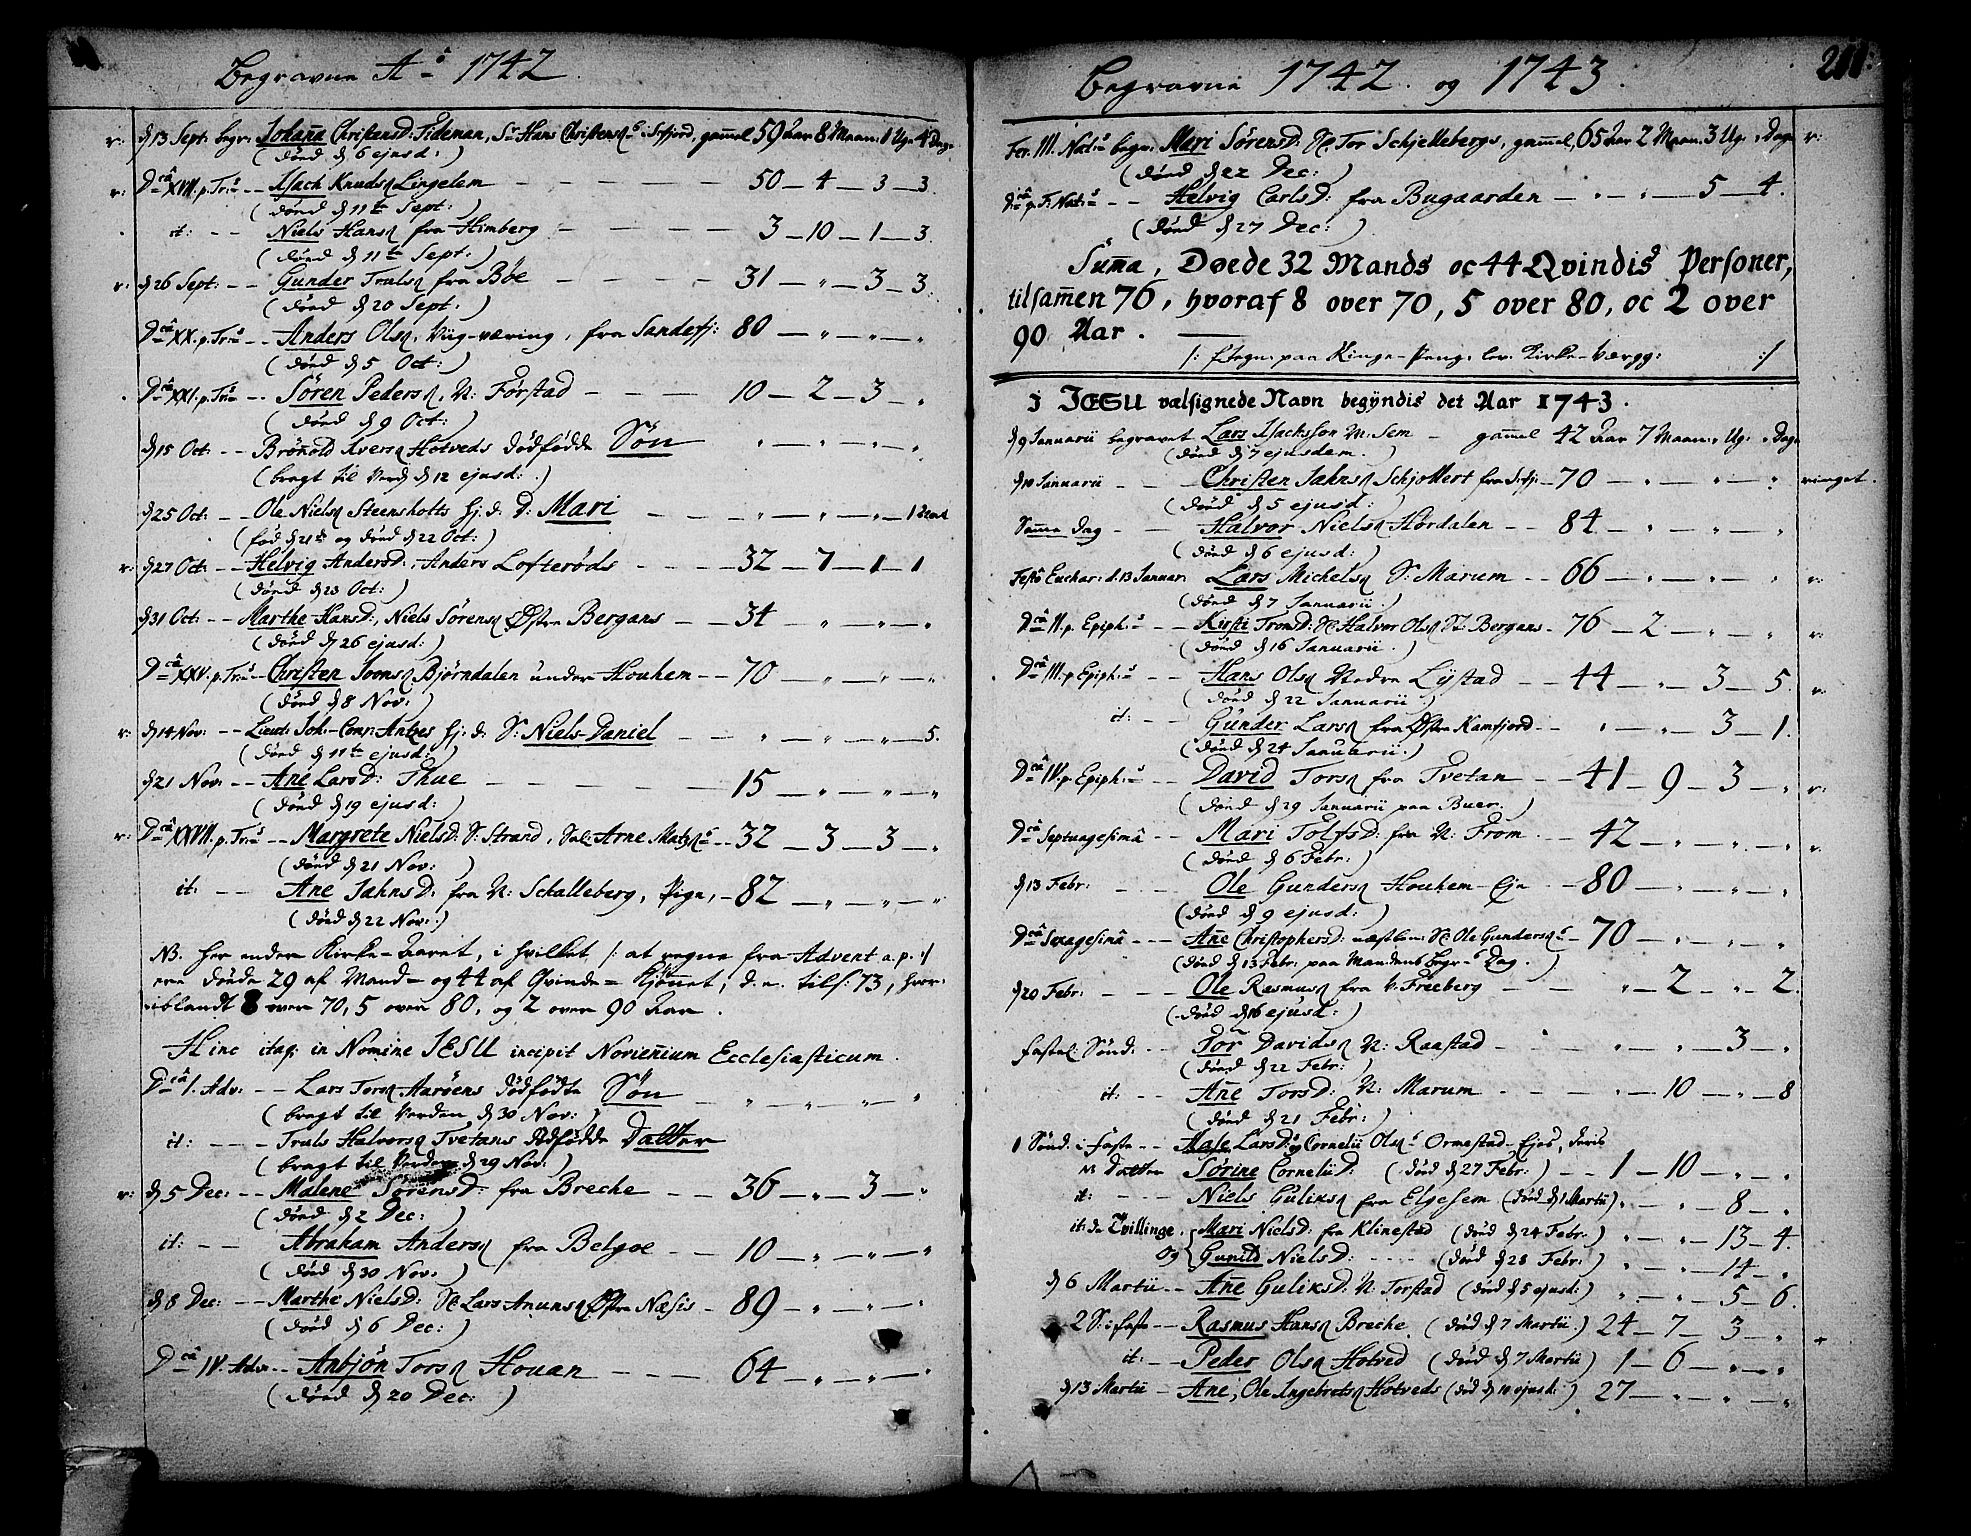 Begravne Aō 1742
d 13 Sept: begr: Johan̄a Christensd: Tideman, Sr Hans Christensens i S:fjord, gam̄el 59 Aar 8 Maan: 1 Ug: 4 Dage
(døed d 6 ejusd:)
Dcâ XVII. p. Tr: -- Isach Knuds: Lingelem -- 50 - 4 - 3 - 3.
(døed d 11te Sept:)
it: -- Niels Hans: fra Himberg -- 3 - 10 - 1 - 3.
(døed d 11te Sept:)
d 26 Sept: -- Gunder Truls: fra Bøe -- 31 - " - 3 - 3.
(døed d 20 Sept:)
Dcâ XX. p. Tr: -- Anders Ols: Viig-væring, fra Sandefj: 80 - " - " - "
(døed d 5 Oct:)
Dcâ XXI. p. Tr: -- Sören Peders: N: Førstad -- 10 - 2 - 3 - "
(døed d 9 Oct:)
d 15 Oct: -- Brönold Ivers: Hotveds dødfødde Søn " - " - " - "
(bragt til Verd: d 12 ejusd:)
d 25 Oct: -- Ole Niels: Steensholts hj: d: D: Mari -- " - " - " - 1
(fød d 21te og døed d 22 Oct:)
d 27 Oct: -- Helvig Andersd: Anders Lofterøds -- 32 - 7 - 1 - 1
(døed d 23 Oct:)
d 31 Oct: -- Marthe Hansd:, Niels Sørens: Østre Bergans -- 34 - " - " - "
(døed d 26 ejusd:)
Dcâ XXV. p. Tr: -- Christen Joons: Bjørndalen under Houhem -- 70 - " - " - "
(døed d 8 Nov:)
d 14 Nov: -- Lieut: Joh: Conr: Antzes hj: d: S: Niels Daniel -- " - " - " - 5.
(døed d 11te ejusd:)
d 21 Nov: -- Ane Larsd: Thue -- 15 - " - " - "
(døed d 19 ejusd:)
Dcâ XXVII. p. Tr: -- Margrete Nielsd: S: Strand, Sal: Arne Matz: -- 32 - 3 - 3 - "
(døed d 21 Nov:)
it: -- Ane Jahnsd: fra N: Schalleberg, Pige, - 82 - " - " - "
(døed d 22 Nov:)
NB. Her ender Kirke-Aaret, i hvilket /: at regne fra Advent a. p. :/
ere døede 29 af Mand- og 44 af Qvinde-Kjøn̄et, d. e. tils: 73, hvor-
iblandt 8 over 70, 5 over 80, og 2 over 90 Aar.
Hinc itaq; in Nomine JESU incipit Novien̄ium Ecclesiasticum.
Dcâ I. Adv: -- Lars Tors: Aarøens dødfødte Søn -- " - " - " - "
(bragt til Verden d 30 Nov:)
it: -- Truls Halvors: Tvetans dødfødde Datter
(bragt til Verden d 29 Nov:)
d 5 Dec: -- Malene Sörensd: fra Breche -- 36 - " - 3 - "
(døed d 2 Dec:)
it: -- Abraham Anders: fra Belgoe -- 10 - " - " - "
(døed d 30 Nov:)
d 8 Dec: -- Marthe Nielsd: Lars Anuns: Østre Næsis - 89 - " - " - "
(døed d 6 Dec:)
Dcâ IV. Adv: -- Anbjön Tors: Houan -- 64 - " - " - "
(døed d 20 Dec:)
Begravne 1742. og 1743. 211:
Fer. III. Nat: begr: Mari Sørensd: Tor Schjellebergs, gam̄el 65 Aar 2 Maan: 3 Ug: " Dage
(døed d 22 Dec:)
Dcâ p. F. Nat: -- Helvig Carlsd: fra Bugaarden - " - " - 5 - 4.
(døed d 27 Dec:)
Sum̄a, Døede 32 Mands oc 44 Qvindis Personer,
tilsam̄en 76, hvoraf 8 over 70, 5 over 80, oc 2 over
90 Aar.
I JESU velsignede Navn begÿndis det Aar 1743.
d 9 Januarii begravet Lars Isachsson N: Sem - gam̄el 42 Aar 7 Maan: " Ug: " Dage
(døed d 7 ejusdem.)
d 10 Januarii -- Christen Jahns: Schjollert fra S:fj: - 70 - " - " - "
(døed d 5 ejusd:)
Sam̄e dag -- Halvor Niels: Hørdalen -- 84 - " - " - "
(døed d 6 ejusd:)
Festo Euchar: d. 13 Januar: Lars Michels: S: Marum -- 66 - " - " - "
(døed d 7 Januarii.)
Dcâ II. p. Epiph: -- Kirsti Tromsd: Halvor Ols: St: Bergans - 76 - 2 - " - "
(døed d 16 Januarii.)
Dcâ III. p. Epiph: -- Hans Ols: Nedre Lÿstad -- 44 - " - 3 - 5.
(døed d 22 Januarii)
it: -- Gunder Lars: fra Østre Kamfjord -- " - " - 3 - 1.
(døed d 24 Januarii.)
Dcâ IV. p. Epiph: -- David Tors: fra Tvetan -- 41 - 9 - 3 - "
(døed d 29 Januarii paa Buer.)
Dcâ Septuagesimâ -- Mari Tolfsd: fra N: From -- 42 - " - " - "
(døed d 6 Febr:)
d 13 Febr: -- Ole Gunders: Houhem-Eje -- 80 - " - " - "
(døed d 9 ejusd:)
Dcâ Sexagesimâ -- An̄e Christophersd: næstbem: Ole Gunders: - 70 - " - " - "
(døed d 13 Febr: paa Mandens Begr: Dag.)
d 20 Febr: -- Ole Rasmus: fra V: Freeberg -- " - 2 - " - 2.
(døed d 16 ejusd:)
Fastel: Sønd. -- Tor Davids: N: Raastad -- " - " - 3 - "
(døed d 22 Febr:)
it: -- An̄e Torsd: N: Marum -- " - 10 - " - 8
(døed d 21 Febr:)
1 Sønd: i Faste -- Aase Larsd: og Cornelii Ols: Ormestad-Ejes, deris
Datter Sörine Corneliid: (død d 27 Febr:) -- 1 - 10 - " - "
it: -- Niels Guliks: fra Elgesem (død d 1 Martii) " - " - 8 - "
it: de Tvillinge, Mari Nielsd: fra Klinestad (død d 24 Febr:) " - " - 13 - 4.
og Gunild Nielsd: -- (død d 28 Febr:) " - " - 14 - "
d 6 Martii -- An̄e Guliksd: N: Torstad (død d 5 ejusd:) " - " - 5 - 6.
2 S: i Faste -- Rasmus Hans: Breche (død d 7 Martii.) 24 - 7 - 3 - "
it: -- Peder Ols: Hotved (død d 7 Martii) 1 - 6 - " - "
d 13 Martii - Ane, Ole Ingebrets: Hotveds (død d 10 ejusd:) 27 - " - " - "